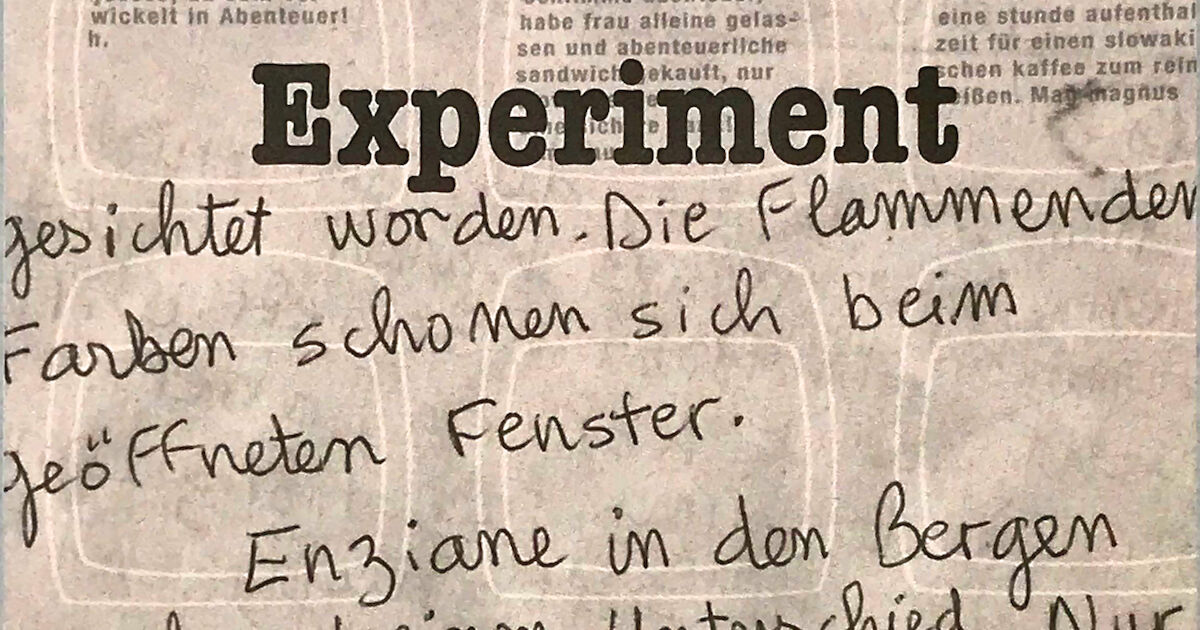 wickelt in Abenteuer!
h.
habe frau alleine gelas-
sen und abenteuerliche
sandwich ekauft, nur
eine stunde aufenthal
zeit für einen slowaki
schen kaffee zum rein
eißen. Mag magnus
Experiment
gesichtet worden. Die Flammenden
Farben schonen sich beim
geöffneten Fenster.
Enziane in den Bergen
Unterschied Nur